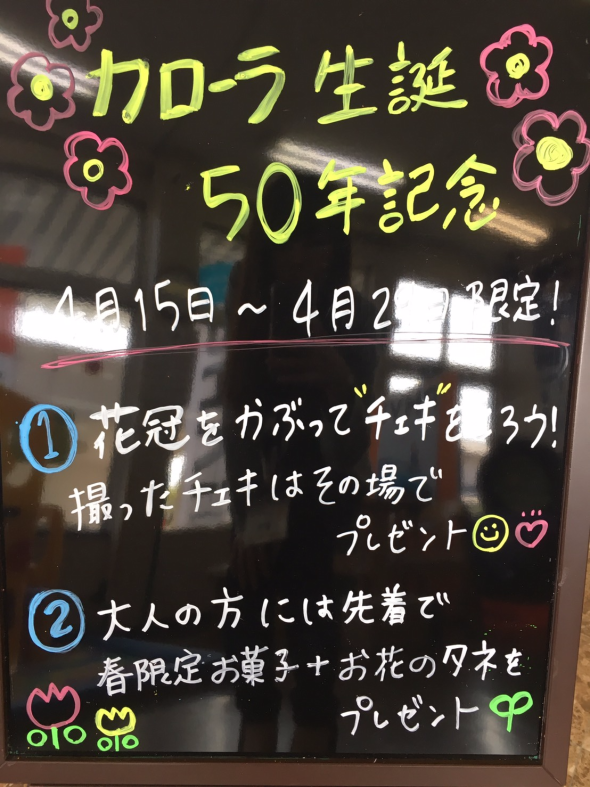 カローラ 生誕
50年記念
4月15日 ~ 4月2 日限定!
① 花冠をかぶって"チェキ"をとろう!
撮ったチェキはその場で
プレゼント
② 大人の方には先着で
春限定お菓子+お花のタネを
プレゼント